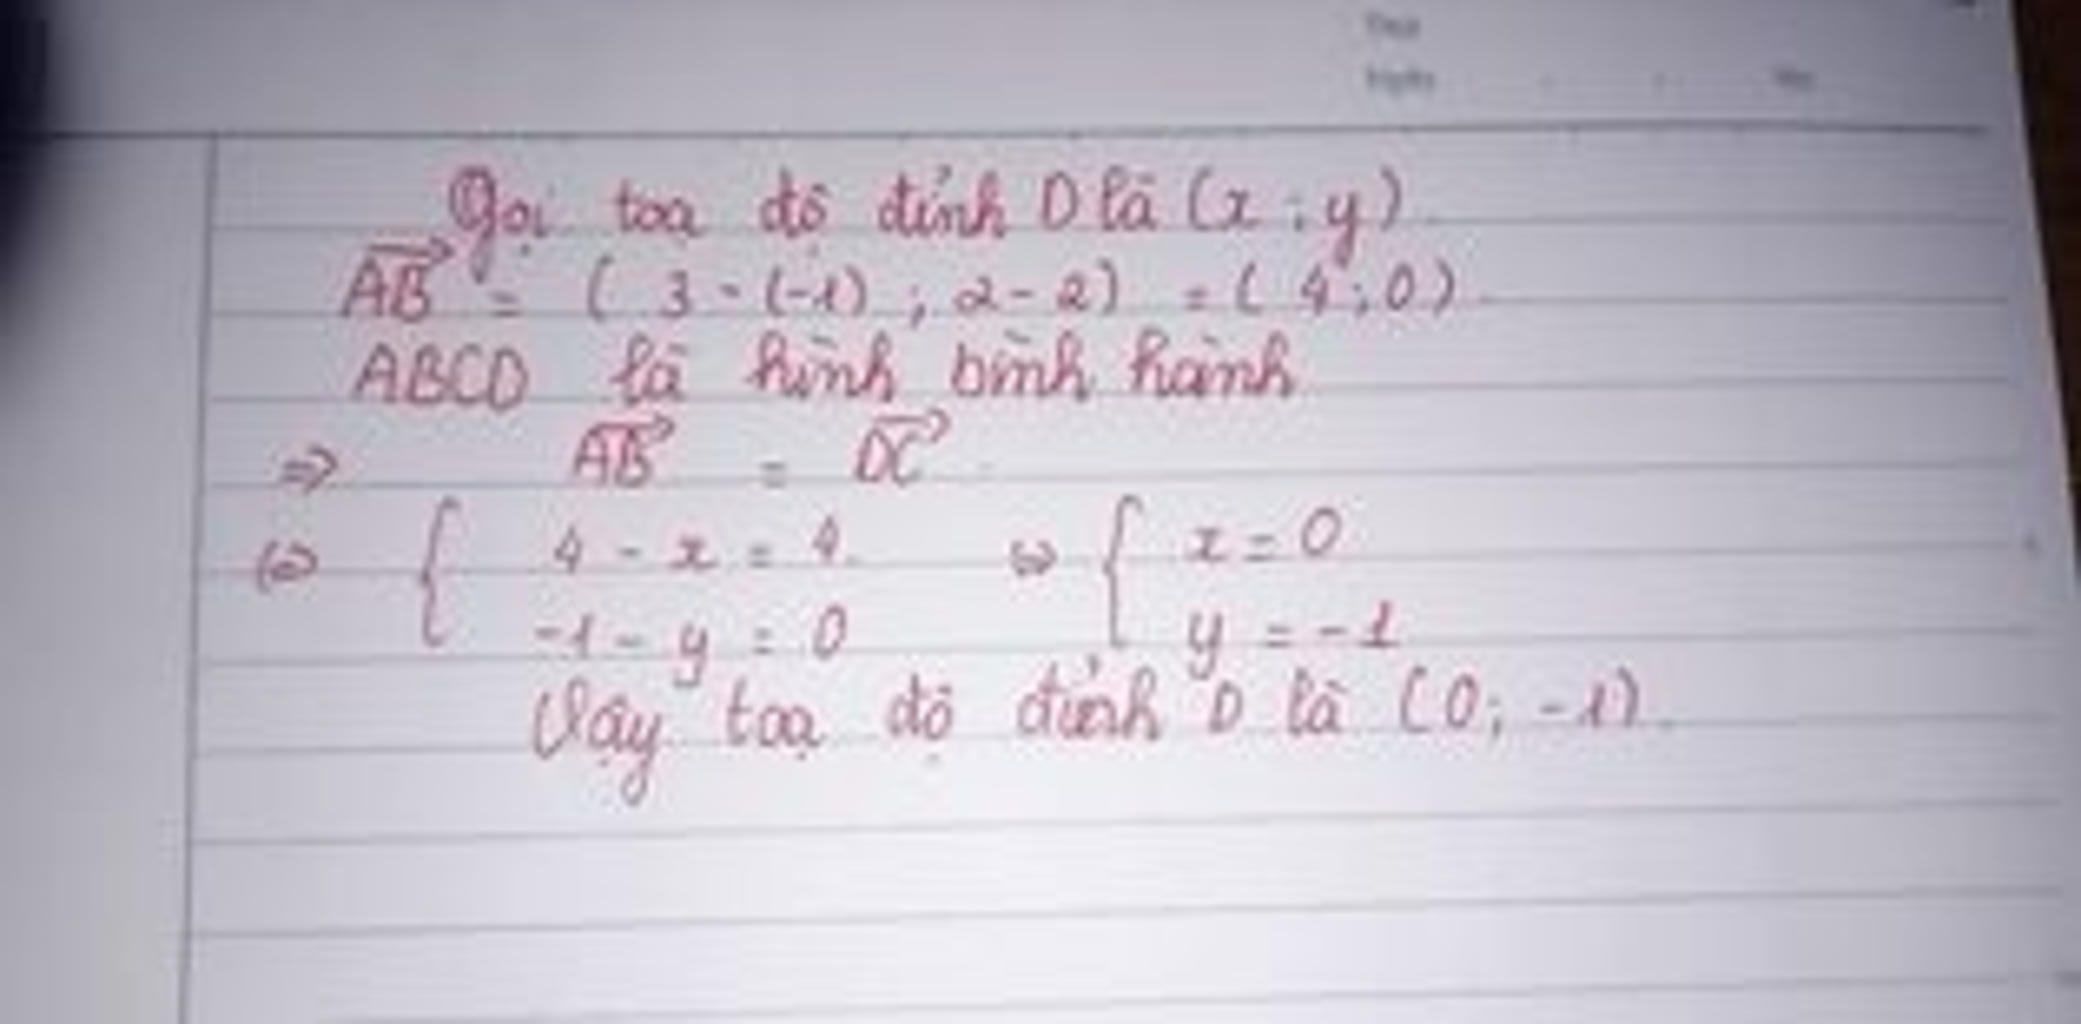 Gọi toạ độ đỉnh D là (x ; y)
AB = ( 3 - (-1) ; 2 - 2) = ( 4 ; 0)
ABCD là hình bình hành
=> AB = DC
<=> { 4 - x = 4 <=> { x = 0
-1 - y = 0 y = -1
Vậy toạ độ đỉnh D là (0 ; -1).